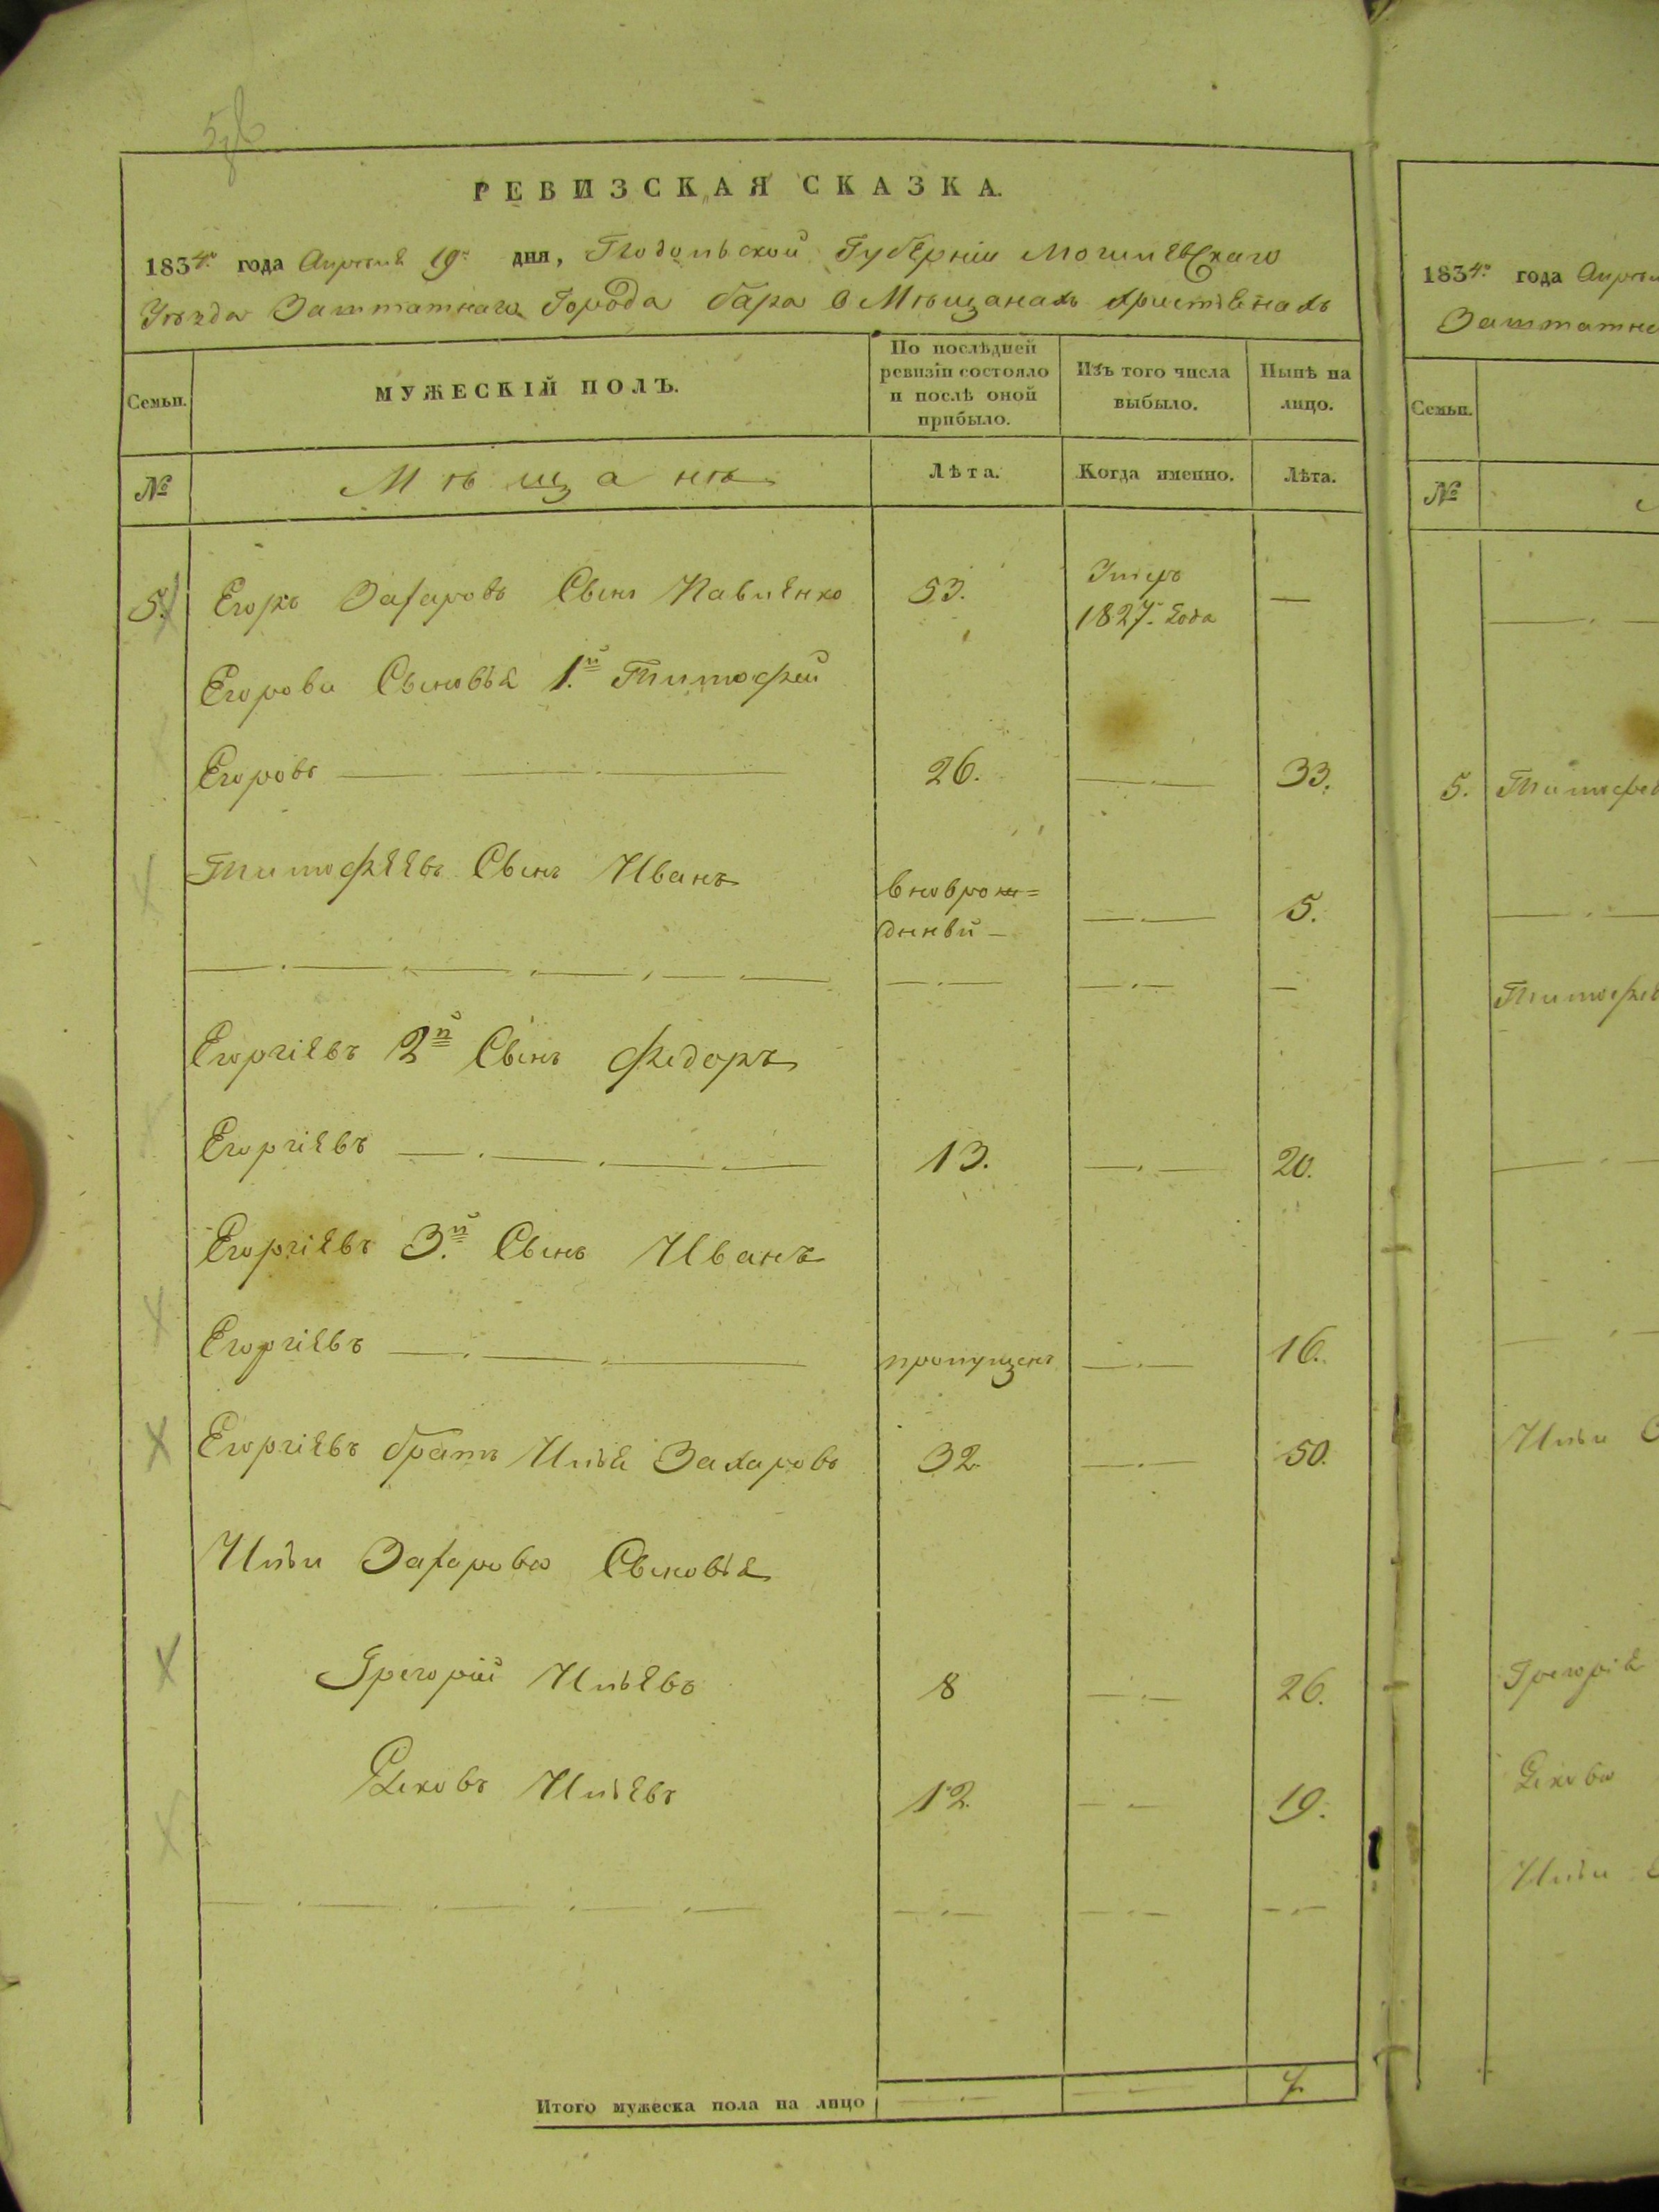 РЕВИЗСКАЯ СКАЗКА.
1834го года Апреля 19го дня, Подольской Губерніи Могилевскаго
Уѣзда Заштатнаго Города Бара О Мѣщанахъ Христіянахъ
Семьи. МУЖЕСКІЙ ПОЛЪ. По послѣдней ревизіи состояло и послѣ оной прибыло. Изъ того числа выбыло. Нынѣ на лицо.
№ Мѣщане Лѣта. Когда именно. Лѣта.
5. Егоръ Захаровъ Сынъ Павленко 53. Умеръ 1827го года —
Егорови Сыновья 1й Тимофей
Егоровъ 26. — 33.
Тимофеевъ Сынъ Иванъ вноврож=
днный — — 5.
Георгіевъ 2й Сынъ Федоръ
Георгіевъ 13. — 20.
Георгіевъ 3й Сынъ Иванъ
Георгіевъ пропущенъ — 16.
Георгіевъ братъ Илья Захаровъ 32. — 50.
Ильи Захарова Сыновья
Грегорій Ильевъ 8 — 26.
Яковъ Ильевъ 12. — 19.
Итого мужеска пола на лицо — — 7
1834го года
Заштатна
Семьи.
№
5. Тимофе
Тимофе
Ильи
Грегорія
Якова
Ильи